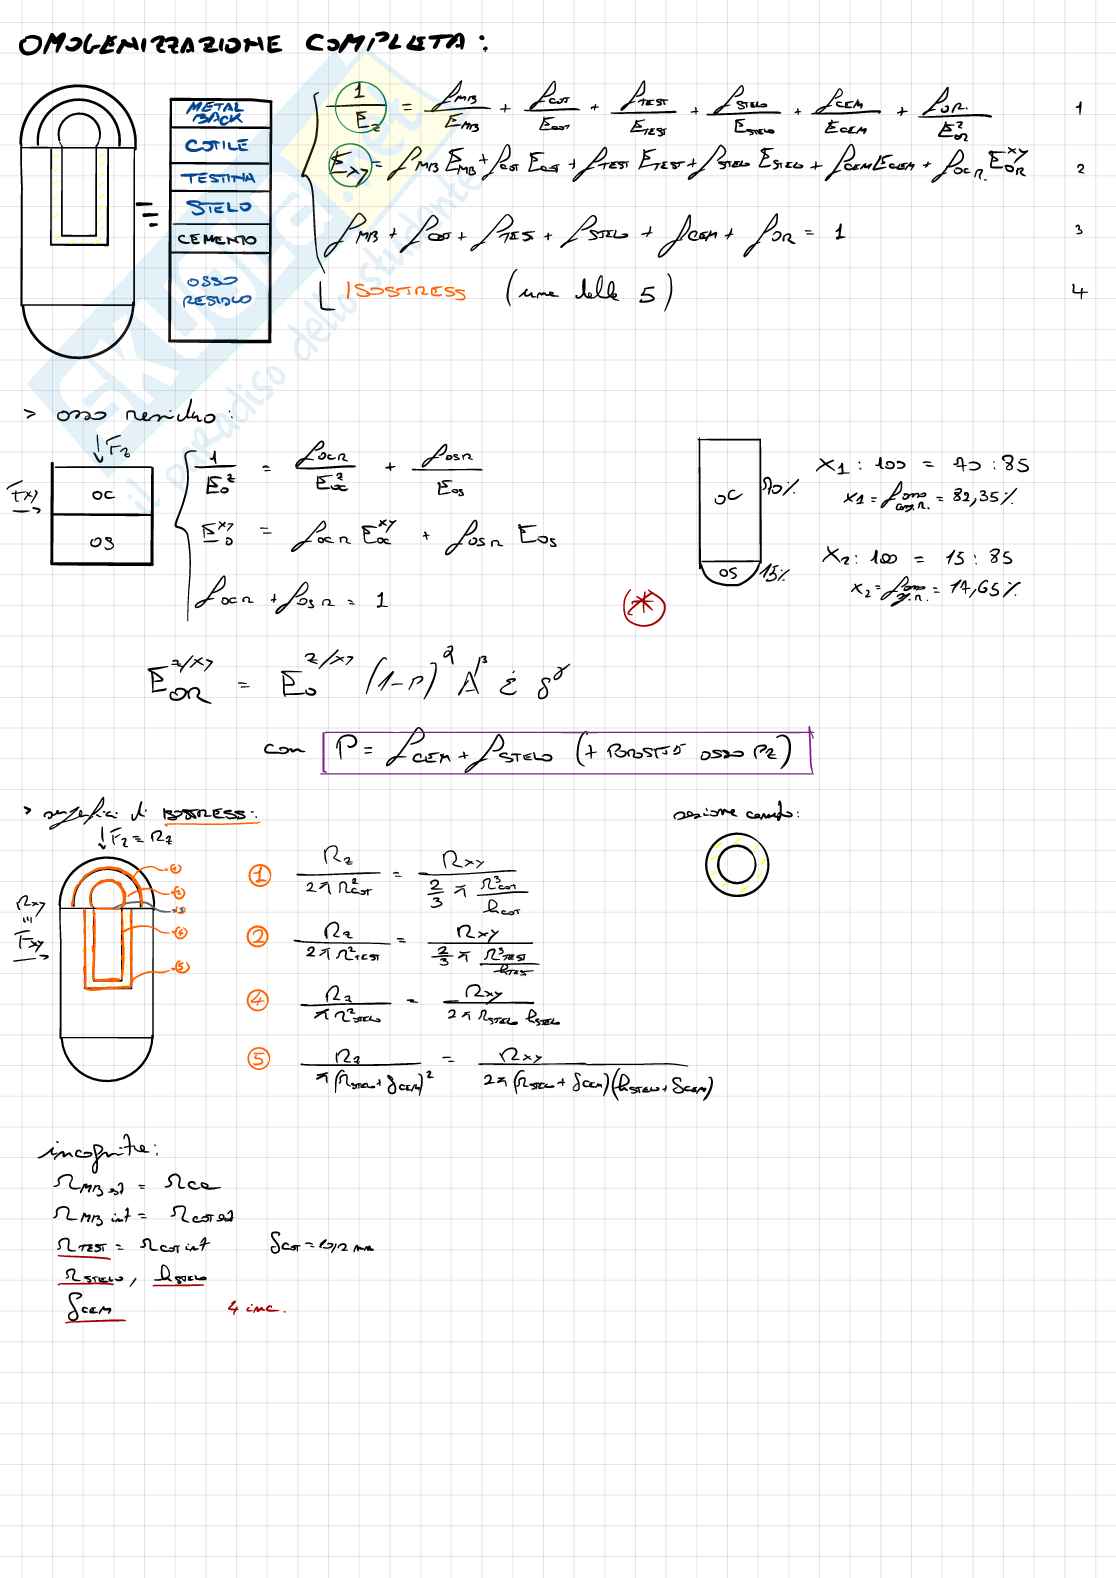 OMOGENIZZAZIONE COMPLETA:
METAL BACK
COTILE
TESTINA
STELO
CEMENTO
OSSO RESIDUO
1/E_z = f_MB/E_MB + f_COT/E_COT + f_TEST/E_TEST + f_STELO/E_STELO + f_CEM/E_CEM + f_OR/E_OR^z 1
E_xy = f_MB E_MB + f_COT E_COT + f_TEST E_TEST + f_STELO E_STELO + f_CEM E_CEM + f_OCR E_OR^xy 2
f_MB + f_COT + f_TES + f_STELO + f_CEM + f_OR = 1 3
ISOSTRESS (una delle 5) 4
> osso residuo:
↓ F_z
F_xy →
OC
OS
1/E_O^z = f_OCR/E_OC^z + f_OSR/E_OS
E_O^xy = f_OCR E_OC^xy + f_OSR E_OS
f_OCR + f_OSR = 1
OC 70%
OS 15%
x1 : 100 = 70 : 85
x1 = f = 82,35%
x2 : 100 = 15 : 85
x2 = f = 17,65%
*
E_OR^z/xy = E_O^z/xy (1-P)^α A^β ε̇ δ^γ
con P = f_CEM + f_STELO (+ POROSITÀ OSSO PZ)
> superfici di ISOSTRESS:
↓ F_z = R_z
R_xy = F_xy →
1
2
3
4
5
① R_z / 2π r²_COT = R_xy / (2/3 π r³_COT/h_COT)
② R_z / 2π r²_TEST = R_xy / (2/3 π r³_TEST/h_TEST)
④ R_z / π r²_STELO = R_xy / 2π r_STELO h_STELO
⑤ R_z / π(r_STELO + δ_CEM)² = R_xy / 2π(r_STELO + δ_CEM)(h_STELO + δ_CEM)
sezione cemento:
incognite:
r_MB est = r_ca
r_MB int = r_COT est
r_TEST = r_COT int δ_COT = 10,2 mm
r_STELO, h_STELO
δ_CEM 4 inc.
SKUOLA.net
il paradiso dello studente